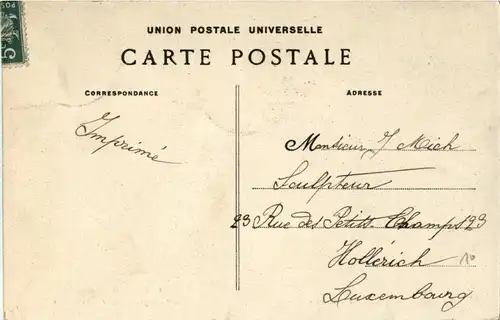 UNION POSTALE UNIVERSELLE
CARTE POSTALE
CORRESPONDANCE
ADRESSE
Imprimé
Monsieur J Mich
Sculpteur
23 Rue des Petits Champs 23
Hollérich
Luxembourg